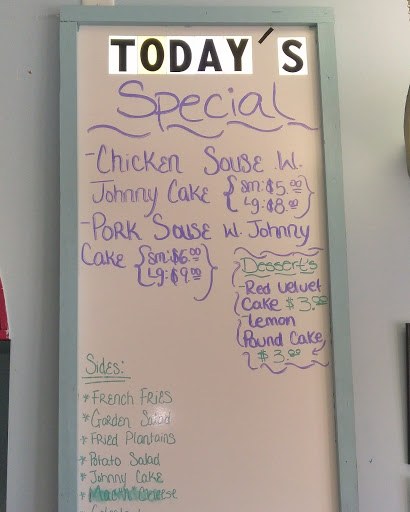 TODAY'S
Special
-Chicken Souse W.
Johnny Cake {sm:$5.00
Lg:$8.00}
-Pork Souse W. Johnny
Cake {sm:$6.00
Lg:$9.00}
Dessert's
-Red velvet
Cake $3.00
-Lemon
Pound Cake
$3.00
Sides:
*French Fries
*Garden Salad
*Fried Plantains
*Potato Salad
*Johnny Cake